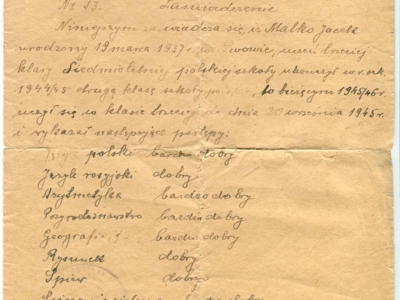 Nr 13. Zaświadczenie
Niniejszym zaświadcza się, iż Malko Jacek
urodzony 19 marca 1937 r. we Lwowie, uczeń trzeciej
klasy Siedmioletniej polskiej szkoły ukończył w r. szk.
1944/45 drugą klasę szkoły, w bieżącym 1945/46 r.
uczył się w klasie trzeciej do dnia 20 września 1945 r.
i wykazał następujące postępy:
Język polski bardzo dobry
Język rosyjski dobry
Arytmetyka bardzo dobry
Przyrodoznawstwo bardzo dobry
Geografia bardzo dobry
Rysunek dobry
Śpiew dobry
dobry